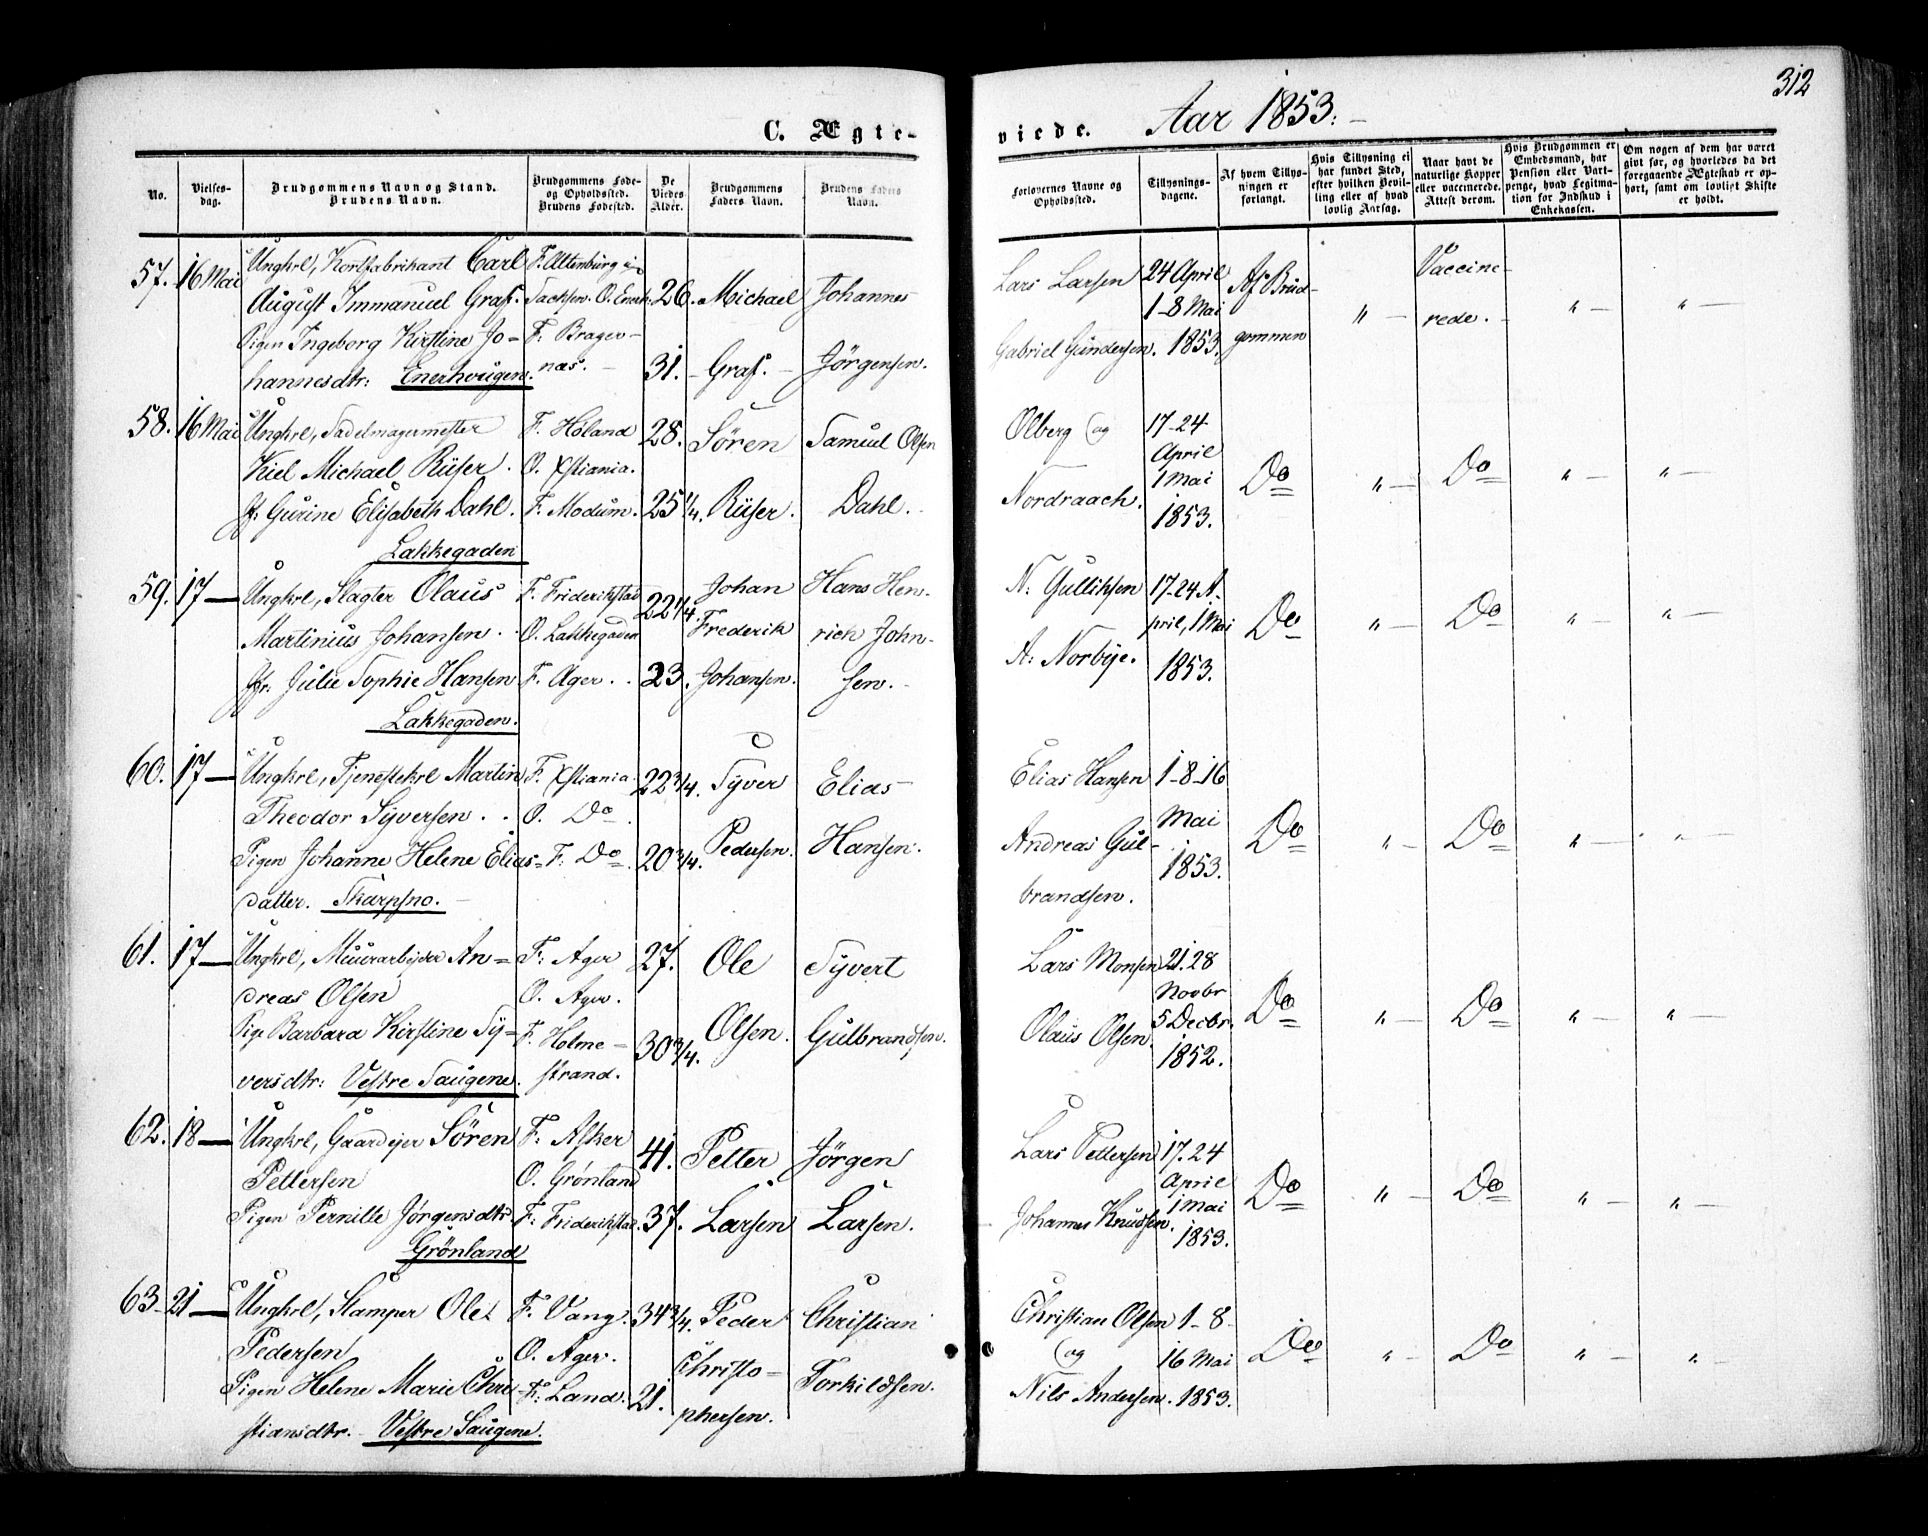 312
C. Ægte-
viede. Aar 1853.
No.
Vielses-
dag.
Brudgommens Navn og Stand.
Brudens Navn.
Brudgommens Føde-
og Opholdssted.
Brudens Fødested.
De
Viedes
Alder.
Brudgommens
Faders Navn.
Brudens Faders
Navn.
Forlovernes Navne og
Opholdssted.
Tillysnings-
dagene.
Af hvem Tillys-
ningen er
forlangt.
Hvis Tillysning ei
har fundet Sted,
efter hvilken Bevil-
ling eller af hvad
lovlig Aarsag.
Naar havt de
naturlige Kopper
eller vaccinerede.
Attest derom.
Hvis Brudgommen er
Embedsmand, har
Pension eller Vart-
penge, hvad Legitima-
tion for Indskud i
Enkekassen.
Om nogen af dem har været
gift før, og hvorledes da det
foregaaende Ægteskab er op-
hørt, samt om lovligt Skifte
er holdt.
57. 16 Mai Ungkrl, Kortfabrikant Carl F. Altenburg i 26. Michael Johannes Lars Larsen 24 April Af Brud- Vaccine-
August Immanuel Graf. Sachsen. O. Enerh. 1-8 Mai " — rede. " — " —
Pigen Ingeborg Kirstine Jo- F. Brager- 31. Graf. Jörgensen. Gabriel Gundersen. 1853. gommen
hannesdtr: Enerhougen. næs.
58. 16 Mai Ungkrl, Sadelmagermester F. Höland 28. Sören Samuel Olsen Olberg og 17-24
Kiel Michael Rüser. O. Xstiania. April
1 Mai Do " — Do " — " —
Jf: Gurine Elisabeth Dahl. F. Modum. 25 1/4. Rüser. Dahl. Nordraach. 1853.
Lakkegaden
59. 17 — Ungkrl, Slagter Olaus F. Friderikstad 22 1/4. Johan Hans Hen- N. Gulliksen 17-24 A-
Martinius Johansen. O. Lakkegaden Frederik rich John- pril, 1 Mai Do " — Do " — " —
Jfr: Julie Sophie Hansen F. Ager. 23. Johansen. sen. A. Norbye. 1853.
Lakkegaden.
60. 17 — Ungkrl, Tjenestekrl Martin F. Xstiania. 22 3/4. Syver Elias Elias Hansen 1-8-16
Theodor Syversen. O. Do. Mai Do " — Do " — " —
Pigen Johanne Helene Elias= F. Do. 20 3/4. Pedersen. Hansen. Andreas Gul- 1853.
datter. Skarpsno. brandsen.
61. 17 — Ungkrl, Muurarbejder An= F: Ager 27. Ole Syvert Lars Monsen 21. 28
dreas Olsen O. Ager. Novbr Do " — Do " — " —
Pige Barbara Kirstine Sy= F. Holme- 30 3/4. Olsen. Gulbrandsen. Olaus Olsen. 5 Decbr.
versdtr: Vestre Saugene. strand. 1852.
62. 18 — Ungkrl, Gaardejer Sören F: Asker 41. Petter Jörgen Lars Pettersen 17. 24
Pettersen O. Grönland April
1 Mai Do " — Do " — " —
Pigen Pernille Jørgensdtr F. Friderikstad. 37. Larsen Larsen. Johannes Knudsen. 1853.
Grönland
63. 21 — Ungkrl, Stamper Ole F. Vang. 34 3/4. Peder Christian Christian Olsen 1-8-
Pedersen O. Ager. Christo- og 16 Mai Do " — Do " — " —
Pigen Helene Marie Chri- F: Land. 21. phersen. Torkildsen. Nils Andersen. 1853.
stiansdtr. Vestre Saugene.